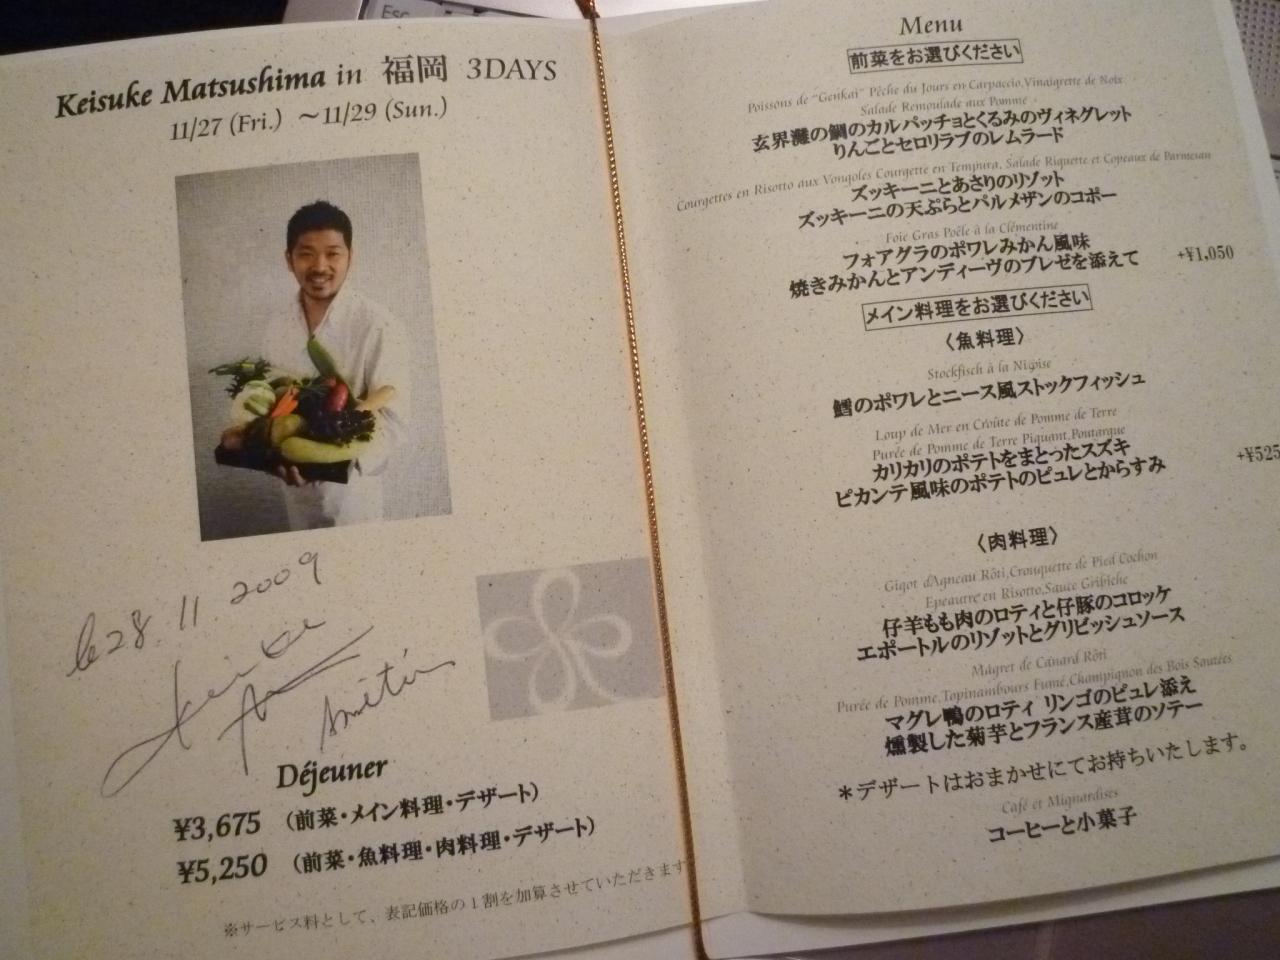 ESC
Keisuke Matsushima in 福岡 3DAYS
11/27 (Fri.) ～11/29 (Sun.)
le 28. 11 2009
Déjeuner
¥3,675 （前菜・メイン料理・デザート）
¥5,250 （前菜・魚料理・肉料理・デザート）
※サービス料として、表記価格の1割を加算させていただきます
Menu
前菜をお選びください
Poissons de "Genkai" Pêche du Jours en Carpaccio,Vinaigrette de Noix
Salade Remoulade aux Pomme
玄界灘の鯛のカルパッチョとくるみのヴィネグレット
りんごとセロリラブのレムラード
Courgettes en Risotto aux Vongoles Courgette en Tempura, Salade Riquette et Copeaux de Parmesan
ズッキーニとあさりのリゾット
ズッキーニの天ぷらとパルメザンのコポー
Foie Gras Poêle à la Clémentine
フォアグラのポワレみかん風味
焼きみかんとアンディーヴのブレゼを添えて +¥1,050
メイン料理をお選びください
〈魚料理〉
Stockfisch à la Niçoise
鱈のポワレとニース風ストックフィッシュ
Loup de Mer en Croûte de Pomme de Terre
Purée de Pomme de Terre Piquant,Poutargue
カリカリのポテトをまとったスズキ
ピカンテ風味のポテトのピュレとからすみ +¥525
〈肉料理〉
Gigot d'Agneau Rôti,Crouquette de Pied Cochon
Epeautre en Risotto,Sauce Gribiche
仔羊もも肉のロティと仔豚のコロッケ
エポートルのリゾットとグリビッシュソース
Magret de Canard Rôti
Purée de Pomme,Topinambours Fumé,Champignon des Bois Sautées
マグレ鴨のロティ リンゴのピュレ添え
燻製した菊芋とフランス産茸のソテー
＊デザートはおまかせにてお持ちいたします。
Café et Mignardises
コーヒーと小菓子